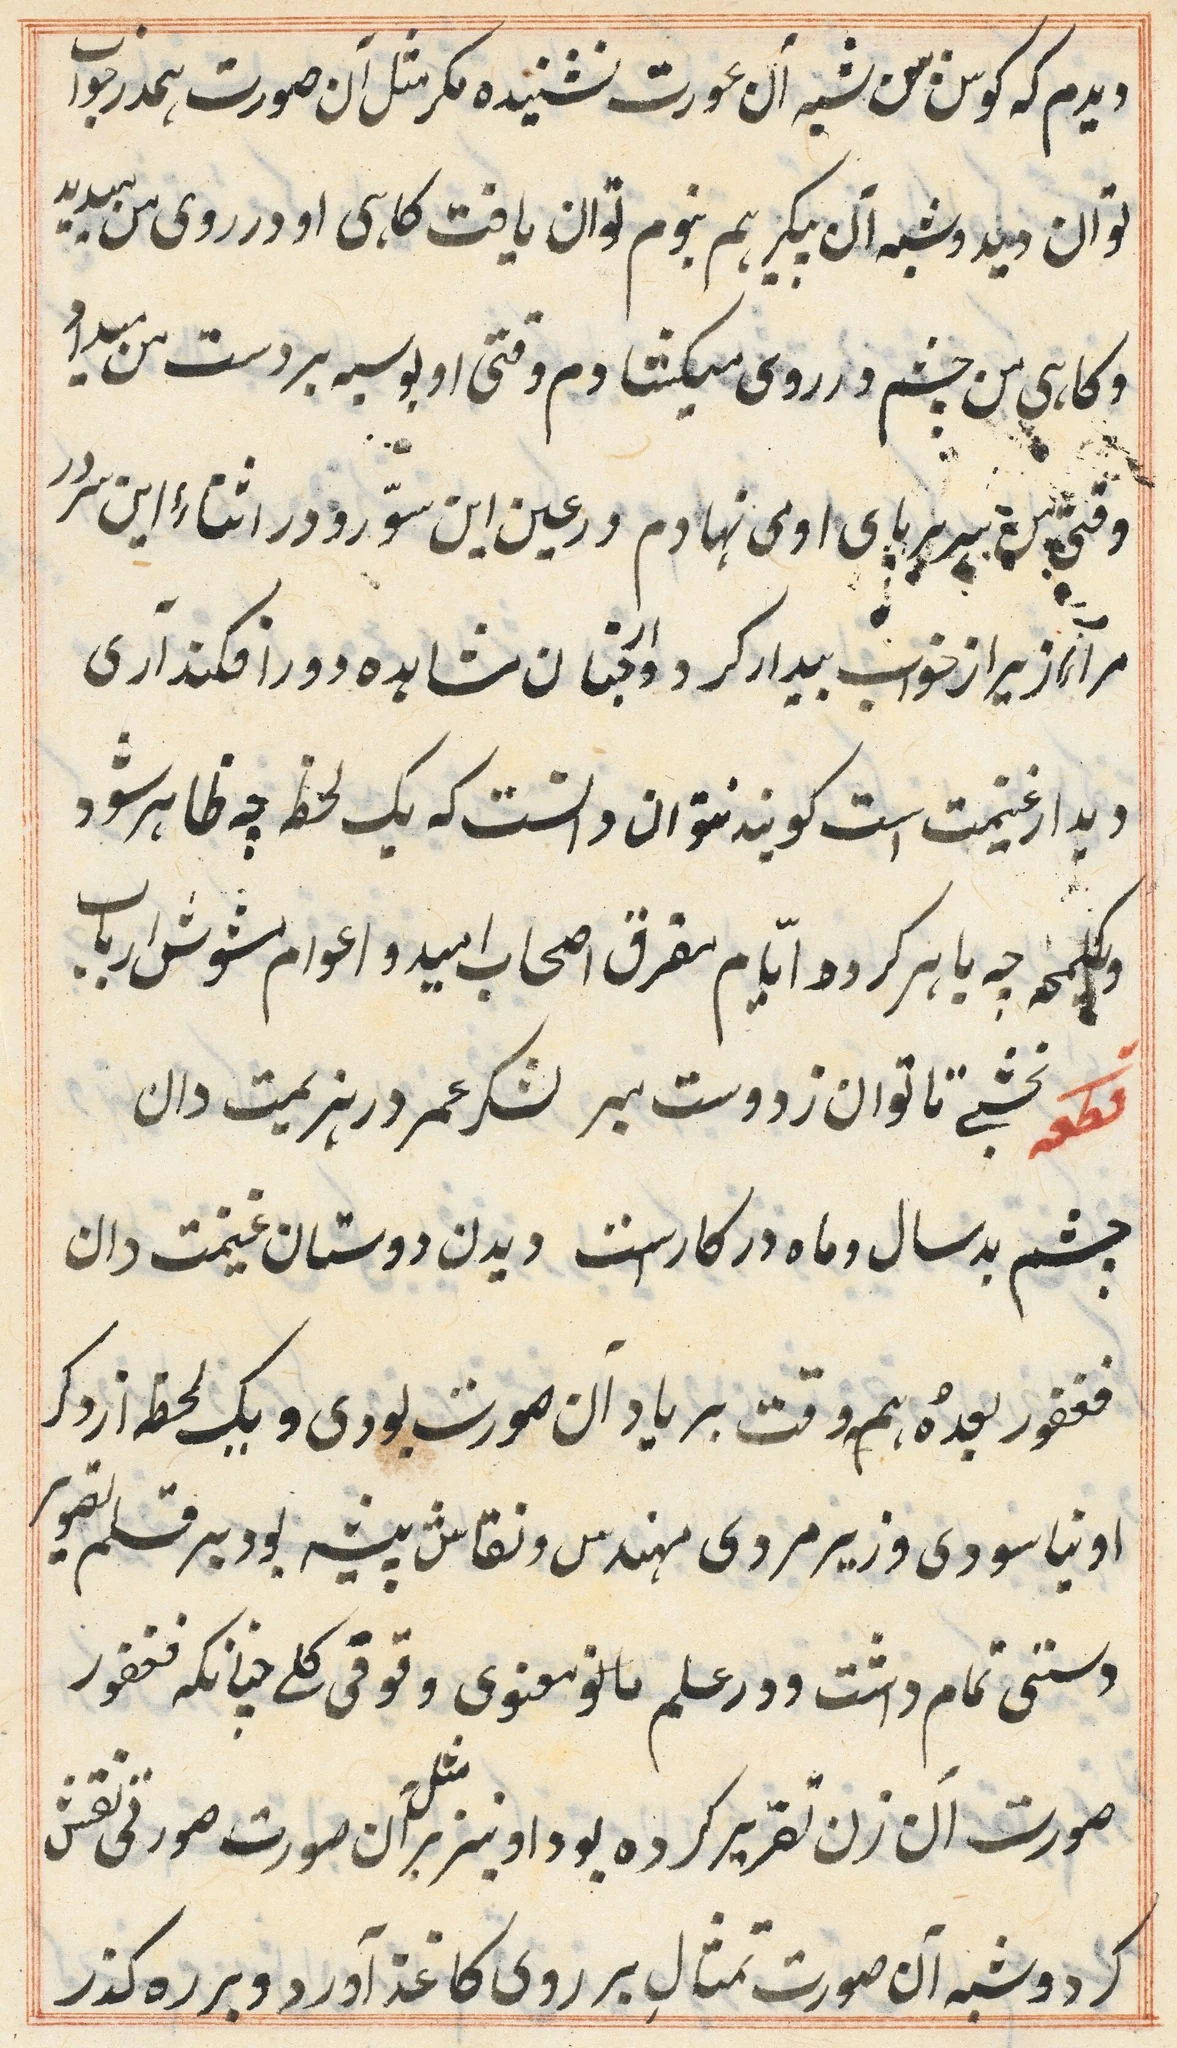 دیدم که کوش من شبه آن عورت نشنیده مکر مثل آن صورت همدر خواب
توان دید و شبه آن پیکر هم بنوم توان یافت کاهی او در روی من میدید
و کاهی من چشم در روی میکشادم وقتی او بوسه بر دست من میداد
وقتی من سر بر پای او می نهادم در عین این سوّر و در اثناء این سرور
مرا آن وزیر از خواب بیدار کرد و از چنان مشاهده دور افکند آری
دیدار غنیمت است کویند نتوان دانست که یک لحظه چه ظاهر شود
و بلمحه چه باهر کردد ایّام مفرق اصحاب امید و اعوام مشوش ارباب
قطعه نخشبے تا توان ز دوست مبر لشکر عمر در هزیمت دان
چشم بد سال و ماه در کارست دیدن دوستان غنیمت دان
فغفور بعدهٔ همه وقت بر یاد آن صورت بودی و یک لحظه از ذکر
او نیاسودی وزیر مردی مهندس و نقاش پیشه بود بر قلم تصویر
دستی تمام داشت و در علم مانو معنوی وقوفی کلے چنانکه فغفور
صورت آن زن تقریر کرده بود او نیز بر مثل آن صورت صورتی نقش
کرد و شبه آن صورت تمثال بر روی کاغذ آورد و بر ره کذر